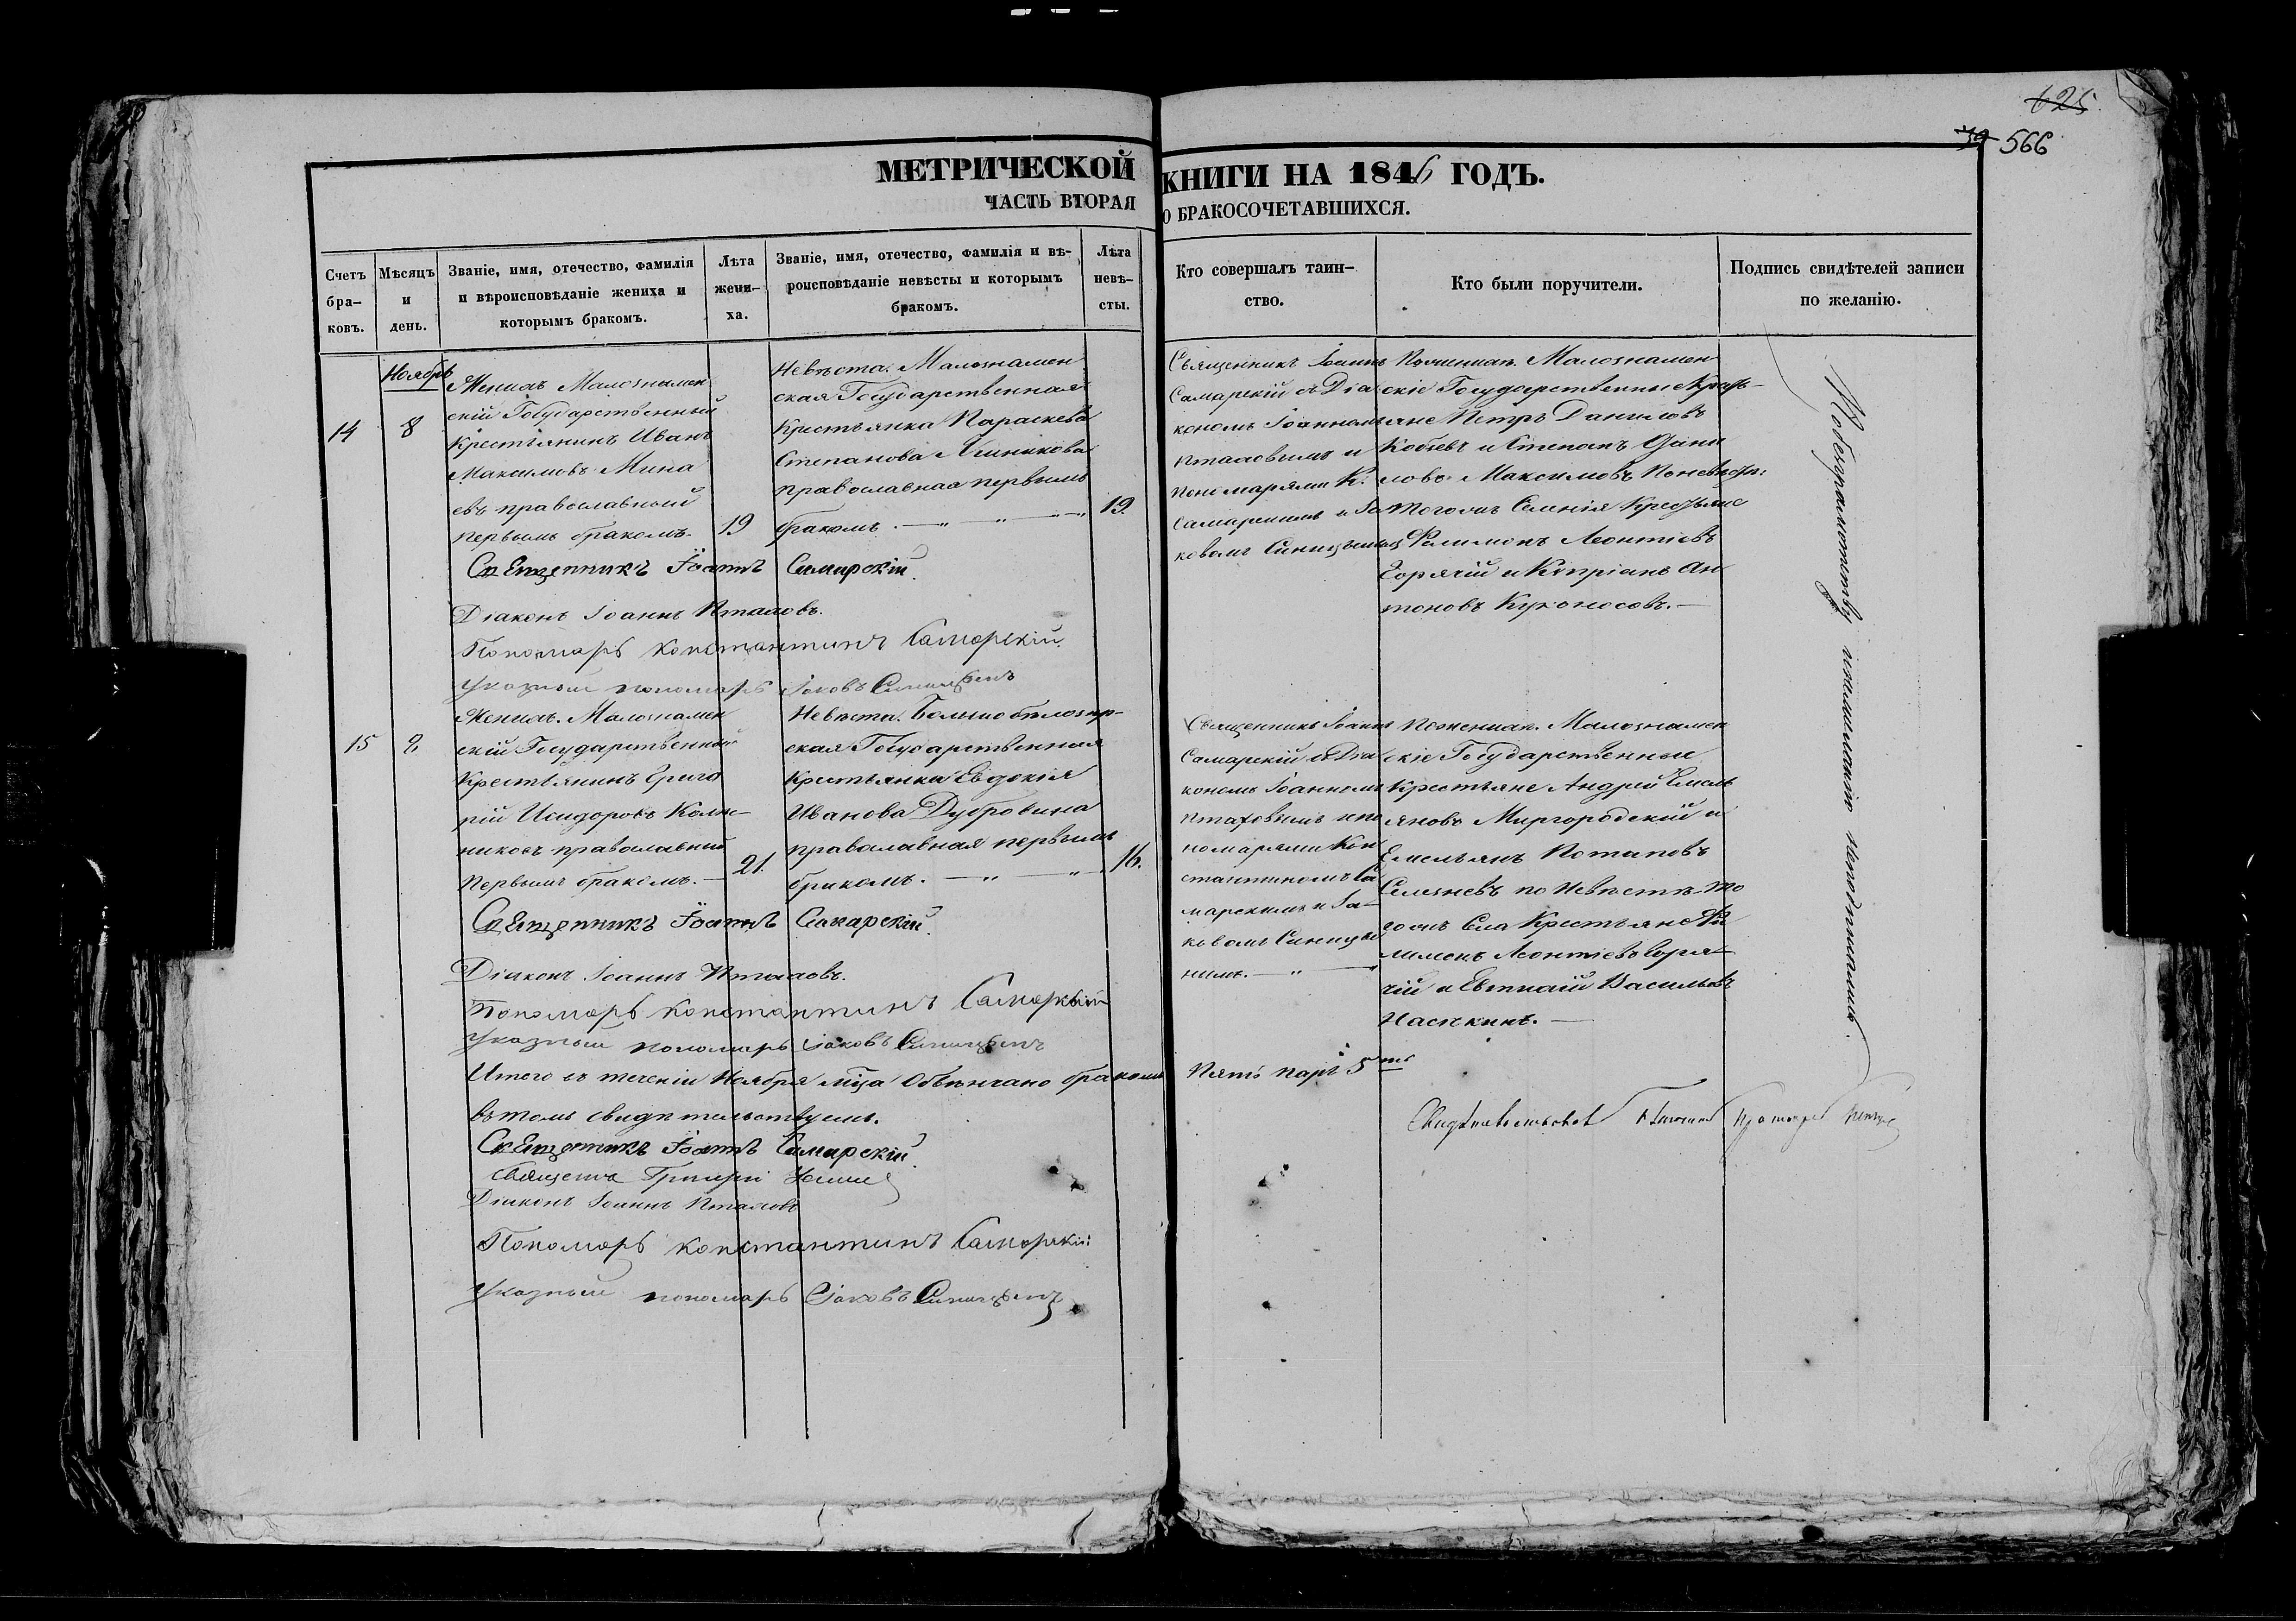 625
39 566
МЕТРИЧЕСКОЙ КНИГИ НА 1846 ГОДЪ.
ЧАСТЬ ВТОРАЯ О БРАКОСОЧЕТАВШИХСЯ.
Счетъ бра-
ковъ.
Мѣсяцъ
и
день.
Званіе, имя, отечество, фамилія
и вѣроисповѣданіе жениха и
которымъ бракомъ.
Лѣта
жени-
ха.
Званіе, имя, отечество, фамилія и вѣ-
роисповѣданіе невѣсты и которымъ
бракомъ.
Лѣта
невѣ-
сты.
Кто совершалъ таин-
ство.
Кто были поручители.
Подпись свидѣтелей записи
по желанію.
Ноябрь
14
8
Женихъ Малознамен
скій Государственный
Крестьянинъ Иванъ
Максимовъ Мина
евъ православный
первымъ бракомъ.
19
Невѣста. Малознамен
ская Государственная
Крестьянка Параскева
Степанова
православная первымъ
бракомъ.
19.
Священникъ Іоаннъ
Самарскій съ Діа
кономъ Іоанномъ
Птаховымъ и
Пономарями К.
Самарскимъ и Іа
ковомъ Синицынымъ
Малознамен
скіе Государственные Кресть-
яне Петръ Даниловъ
Кобзевъ и Степанъ Дани
ловъ Максимовъ По невѣстѣ:
Тогожъ Селенія Крестьяне
Филимонъ Леонтіевъ
Горячій и Кипріанъ Ан
тоновъ Кухоносовъ.
Священникъ Іоаннъ Самарскій
Діаконъ Іоаннъ Птаховъ.
Пономарь Константинъ Самарскій
Указный пономарь Іаковъ Синицынъ
15
8.
Женихъ. Малознамен
скій Государственный
Крестьянинъ Григо
рій Исидоровъ Колес-
никовъ православный
Первымъ бракомъ.
21.
Невѣста. Большебѣлозер-
ская Государственная
Крестьянка Евдокія
Иванова Дубровина
православная первымъ
бракомъ.
16.
Священникъ Іоаннъ
Самарскій съ Діа
кономъ Іоанномъ
Птаховымъ и по
номарями Кон
стантиномъ Са
марскимъ и Іа-
ковомъ Синицы
нымъ.
По женихѣ. Малознамен
скіе Государственные
Крестьяне Андрей Емель
яновъ Миргородскій и
Емельянъ Потаповъ
Селезневъ по Невѣстѣ. То
гожъ Села Крестьяне Фи
лимонъ Леонтіевъ Горя-
чій и Евтихій Васильевъ
Насѣкинъ.
Священникъ Іоаннъ Самарскій
Діаконъ Іоаннъ Птаховъ.
Пономарь Константинъ Самарскій
Указный пономарь Іаковъ Синицынъ
Итого въ теченіи Ноября мца Обвѣнчано бракомъ Пять паръ 5ть
въ томъ свидѣтельствуемъ.
Священникъ Іоаннъ Самарскій
Діаконъ Іоаннъ Птаховъ
Пономарь Константинъ Самарскій
Указный пономарь Іаковъ Синицынъ